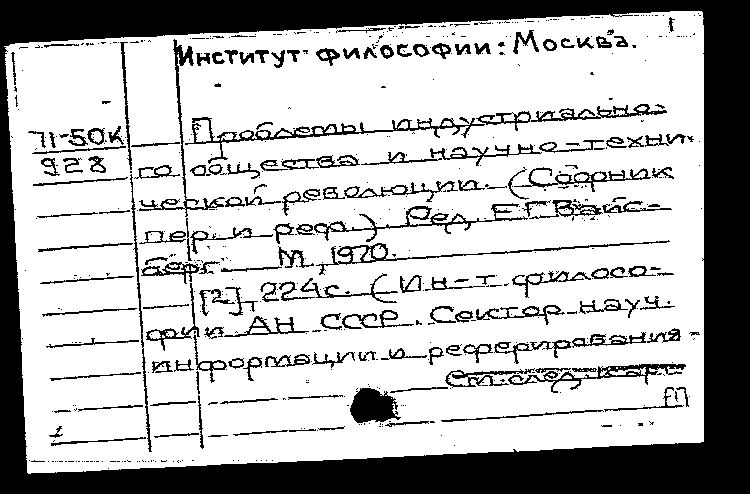 1
Институт философии: Москва.
71-50К
928
Проблемы индустриально-
го общества и научно-техни-
ческой революции. (Сборник
пер. и реф.). Ред. Е.Г.Вайс-
берг. М., 1970.
[2], 224с. (Ин-т филосо-
фии АН СССР. Сектор науч.
информации и реферирования-
См. след. карт.
1